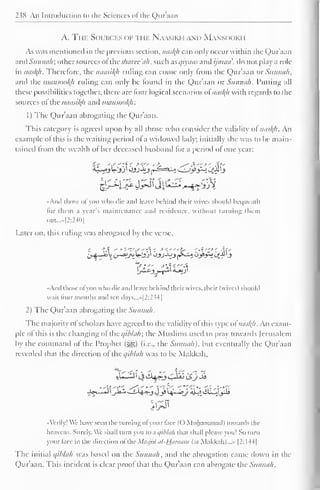 238 An Introduction to the Sciences of the Qur'aan
A. The Sources of the Naasikh and Mansookh
As was mentioned in the previous section, naskh can only occur within the Qur'aan
and Sunnah; other sources of the sharee'ah, such as qiyaas and ijmaa', do not play a role
in naskh. Therefore, the naasikh ruling can come only from the Qur'aan or Sunnah,
and the mansookh ruling can only be found in the Qur'aan or Sunnah. Putting all
these possibilities together, there are four logical scenarios of naskh with regards to the
sources of the naasikh and mansookh:
1) The Qur'aan abrogating the Qur'aan.
This category is agreed upon by all those who consider the validity of naskh. An
example of this is the waiting period of a widowed lady; initially she was to be main-
tained from the wealth of her deceased husband for a period of one year:
وَالَّذِينَ يُتَوَفَّوْنَ مِنكُمْ وَيَذَرُونَ أَزْوَاجًا وَصِيَّةً
لِّأَزْوَاجِهِم مَّتَاعًا إِلَى الْحَوْلِ غَيْرَ إِخْرَاجٍ
«And those of you who die and leave behind their wives should bequeath
for them a year's maintenance and residence, without turning them
out...»[2:240]
Later on, this ruling was abrogated by the verse,
وَالَّذِينَ يُتَوَفَّوْنَ مِنكُمْ وَيَذَرُونَ أَزْوَاجًا يَتَرَبَّصْنَ بِأَنفُسِهِنَّ
أَرْبَعَةَ أَشْهُرٍ وَعَشْرًا
«And those of you who die and leave behind their wives, their (wives) should
wait four months and ten days...»[2:234]
2) The Qur'aan abrogating the Sunnah.
The majority of scholars have agreed to the validity of this type of naskh. An exam-
ple of this is the changing of the qiblah; the Muslims used to pray towards Jerusalem
by the command of the Prophet (ﷺ) (i.e., the Sunnah), but eventually the Qur'aan
revealed that the direction of the qiblah was to be Makkah,
قَدْ نَرَىٰ تَقَلُّبَ وَجْهِكَ فِي السَّمَاءِ
فَلَنُوَلِّيَنَّكَ قِبْلَةً تَرْضَاهَا فَوَلِّ وَجْهَكَ شَطْرَ الْمَسْجِدِ
الْحَرَامِ
«Verily! We have seen the turning of your face (O Muḥammad) towards the
heavens. Surely, We shall turn you to a qiblah that shall please you! So turn
your face in the direction of the Masjid al-Ḥaraam (at Makkah)...» [2:144]
The initial qiblah was based on the Sunnah, and the abrogation came down in the
Qur'aan. This incident is clear proof that the Qur'aan can abrogate the Sunnah.